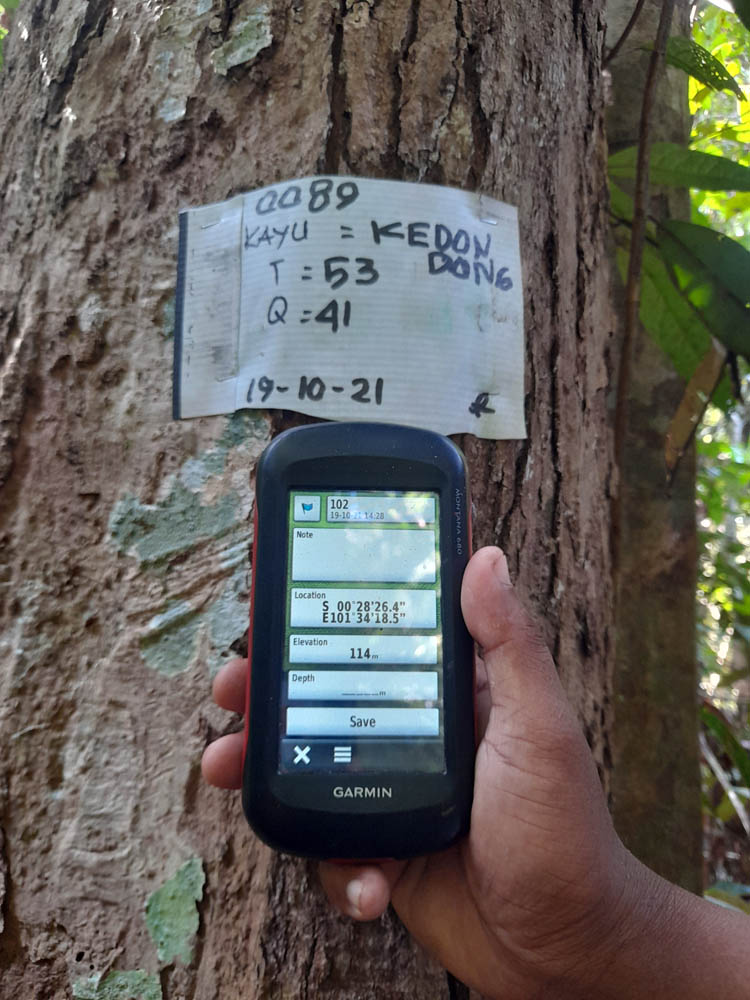 0089
KAYU = KEDON
DONG
T = 53
Q = 41
19-10-21
MONTANA 680
102
19-10-21 14:28
Note
Location
S 00°28'26.4"
E101°34'18.5"
Elevation
114m
Depth
_______m
Save
GARMIN